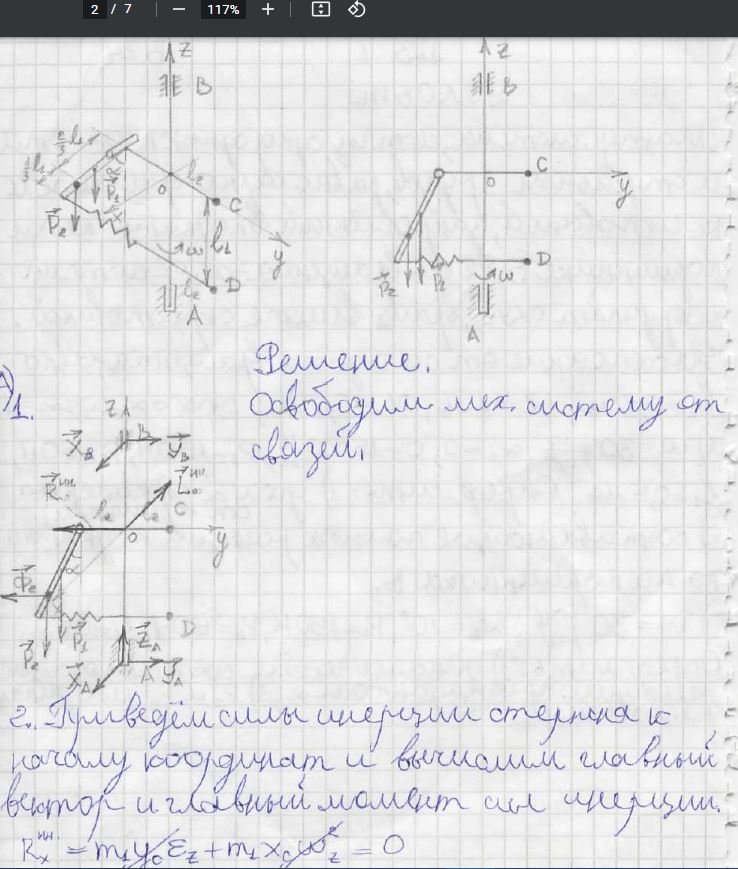 2 / 7 117%
z
B
z
B
⅔ l₁
⅓ l₁
l₂
O
C
y
P₂
P₁
l₁
ω
l₂
D
A
C
O
y
P₂
P₁
D
ω
A
Решение.
1.
Освободим мех. систему от
связей.
z
B
X_B
Y_B
R ин.
L₀ ин.
l₂
l₂
C
O
y
α
Φ₂
P₂
P₁
D
Z_A
X_A
A
Y_A
2. Приведём силы инерции стержня к
началу координат и вычислим главный
вектор и главный момент сил инерции.
Rₓ ин. = m₁y_cε_z + m₁x_cω_z² = 0